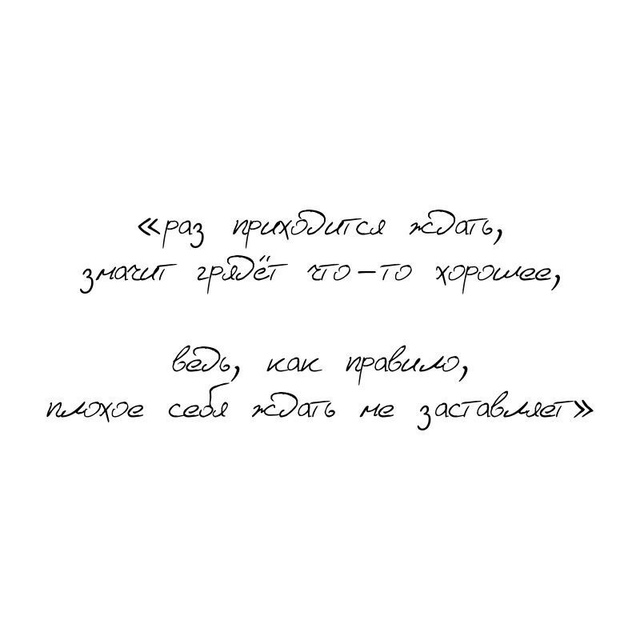 «раз приходится ждать,
значит грядёт что-то хорошее,
ведь, как правило,
плохое себя ждать не заставляет»